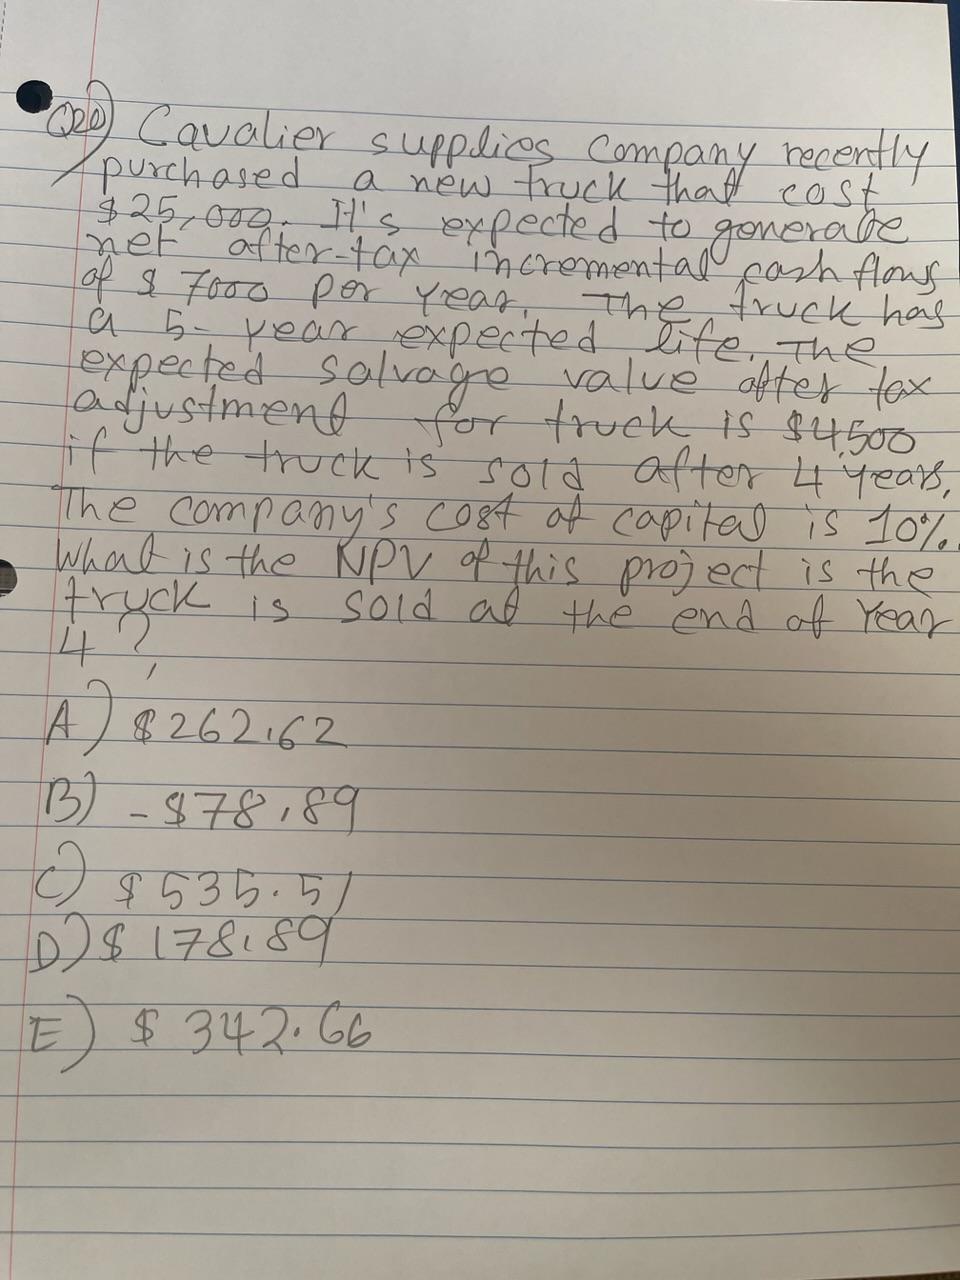 Q20) Cavalier supplies company recently
purchased a new truck that cost
$25,000. It's expected to generate
net after-tax incremental cash flows
of $ 7000 per year. The truck has
a 5-year expected life. The
expected salvage value after tax
adjustment for truck is $4,500
if the truck is sold after 4 years.
The company's cost of capital is 10%.
What is the NPV of this project is the
truck is sold at the end of Year
4?
A) $262.62
B) -$78.89
C) $535.51
D) $178.89
E) $342.66